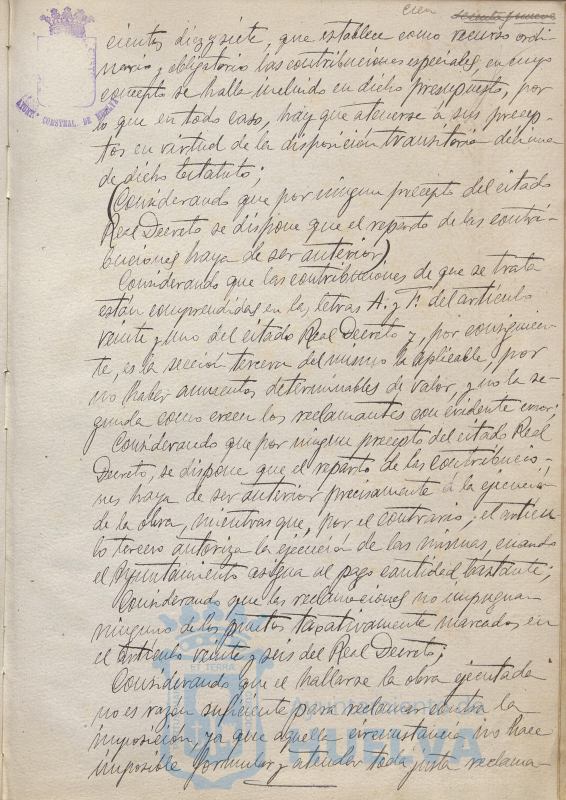 cien
AYUNT. CONSTNAL. DE HUELVA
cientos diez y siete, que establece como recurso ordi-
nario y obligatorio las contribuciones especiales, en cuyo
concepto se halla incluido en dicho presupuesto, por
lo que en todo caso, hay que atenerse á sus precep-
tos en virtud de la disposición transitoria décima
de dicho Estatuto;
(Considerando que por ningun precepto del citado
Real Decreto se dispone que el reparto de las contri-
buciones haya de ser anterior)
Considerando que las contribuciones de que se trata
están comprendidas en las letras A. y F. del artículo
veinte y uno del citado Real Decreto y, por consiguien-
te, es la sección tercera del mismo la aplicable, por
no haber aumentos determinables de valor, y no la se-
gunda como creen los reclamantes con evidente error;
Considerando que por ningun precepto del citado Real
Decreto, se dispone que el reparto de las contribucio-
nes haya de ser anterior precisamente á la ejecución
de la obra, mientras que, por el contrario, el artícu-
lo tercero autoriza la ejecución de las mismas, cuando
el Ayuntamiento asigna al pago cantidad bastante;
Considerando que las reclamaciones no impugnan
ninguno de los puntos taxativamente marcados en
el artículo veinte y seis del Real Decreto;
Considerando que el hallarse la obra ejecutada
no es razón suficiente para reclamar contra la
imposición, ya que aquella circunstancia no hace
imposible formular y atender toda justa reclama-
ET TERRA
Ayuntamiento de
HUELVA